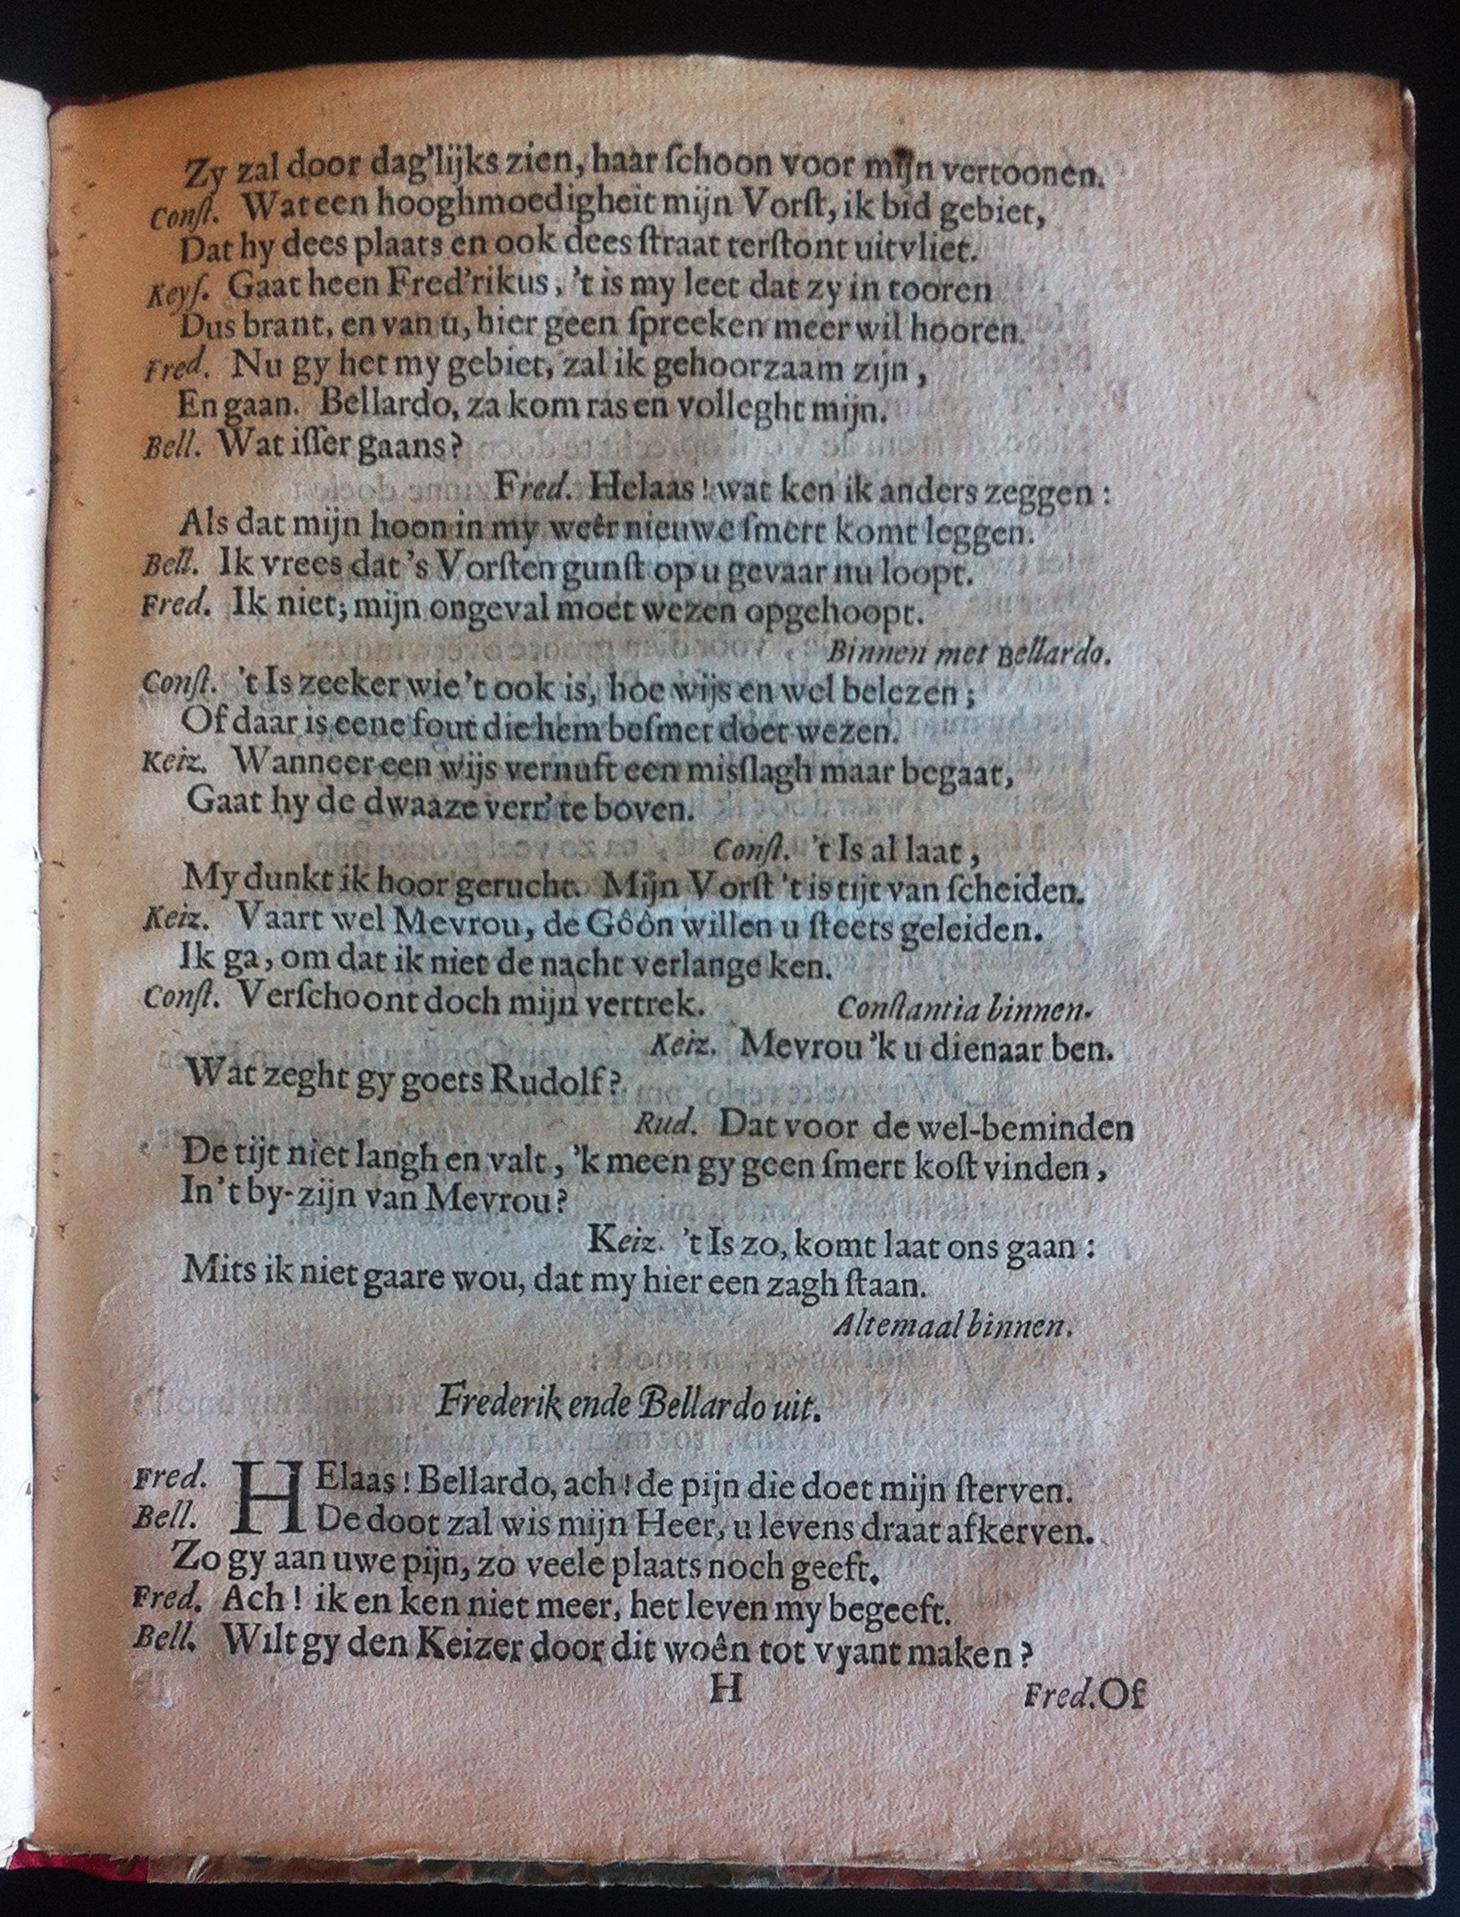 Zy zal door dag'lijks zien, haar ſchoon voor mijn vertoonen.
Conſt. Wat een hooghmoedigheit mijn Vorſt, ik bid gebiet,
Dat hy dees plaats en ook dees ſtraat terſtont uitvliet.
Keyſ. Gaat heen Fred'rikus, 't is my leet dat zy in tooren
Dus brant, en van u, hier geen ſpreeken meer wil hooren.
Fred. Nu gy het my gebiet, zal ik gehoorzaam zijn,
En gaan. Bellardo, za kom ras en volleght mijn.
Bell. Wat iſſer gaans?
Fred. Helaas! wat ken ik anders zeggen:
Als dat mijn hoon in my weêr nieuwe ſmert komt leggen.
Bell. Ik vrees dat 's Vorſten gunſt op u gevaar nu loopt.
Fred. Ik niet; mijn ongeval moet wezen opgehoopt.
Binnen met Bellardo.
Conſt. 't Is zeeker wie 't ook is, hoe wijs en wel belezen;
Of daar is eene fout die hem beſmet doet wezen.
Keiz. Wanneer een wijs vernuft een misſlagh maar begaat,
Gaat hy de dwaaze verr' te boven.
Conſt. 't Is al laat,
My dunkt ik hoor gerucht. Mijn Vorſt 't is tijt van ſcheiden.
Keiz. Vaart wel Mevrou, de Gôôn willen u ſteets geleiden.
Ik ga, om dat ik niet de nacht verlange ken.
Conſt. Verſchoont doch mijn vertrek. Conſtantia binnen.
Keiz. Mevrou 'k u dienaar ben.
Wat zeght gy goets Rudolf?
Rud. Dat voor de wel-beminden
De tijt niet langh en valt, 'k meen gy geen ſmert koſt vinden,
In 't by-zijn van Mevrou?
Keiz. 't Is zo, komt laat ons gaan:
Mits ik niet gaare wou, dat my hier een zagh ſtaan.
Altemaal binnen.
Frederik ende Bellardo uit.
Fred. HElaas! Bellardo, ach! de pijn die doet mijn ſterven.
Bell. De doot zal wis mijn Heer, u levens draat afkerven.
Zo gy aan uwe pijn, zo veele plaats noch geeft.
Fred. Ach! ik en ken niet meer, het leven my begeeft.
Bell. Wilt gy den Keizer door dit woên tot vyant maken?
H Fred. Of